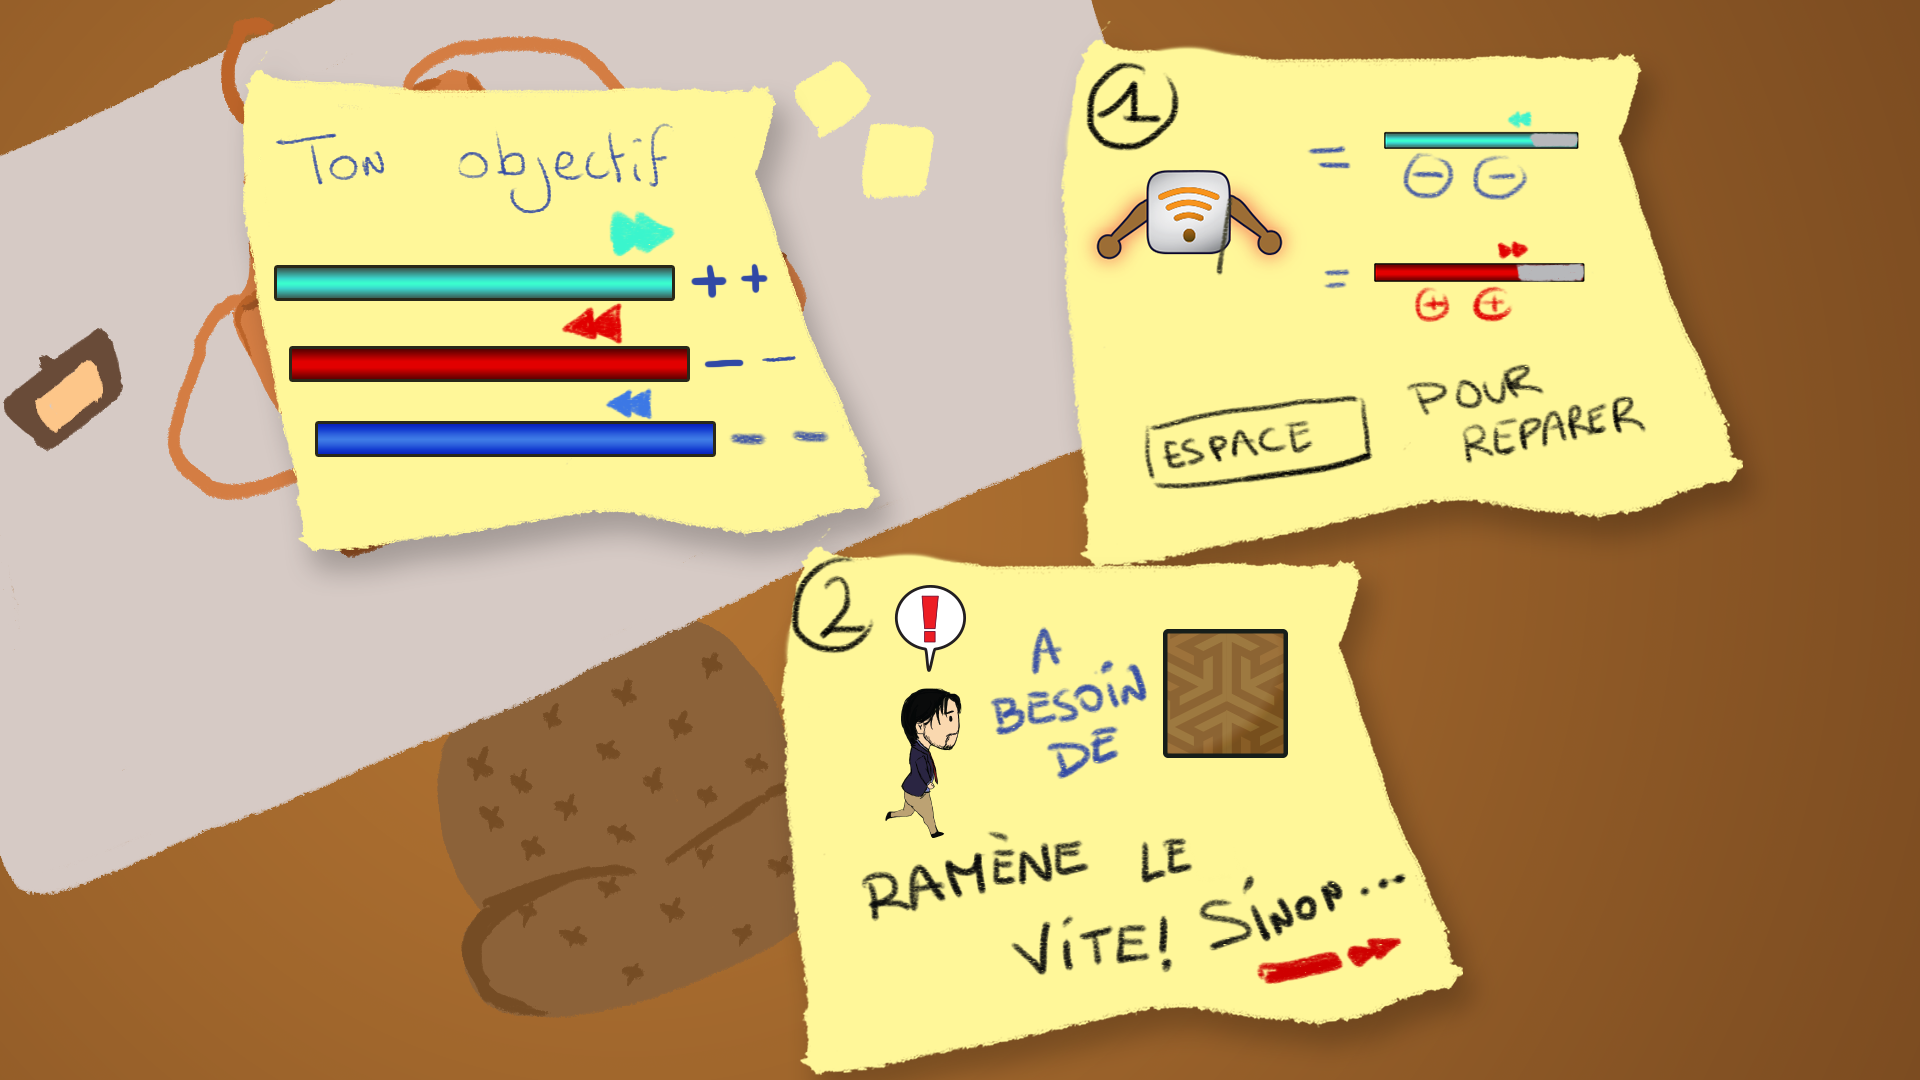 Ton objectif
+ +
- -
- -
1
=
- -
=
+ +
ESPACE POUR
REPARER
2
!
A
BESOiN
DE
RAMÈNE LE
ViTE! SiNON...